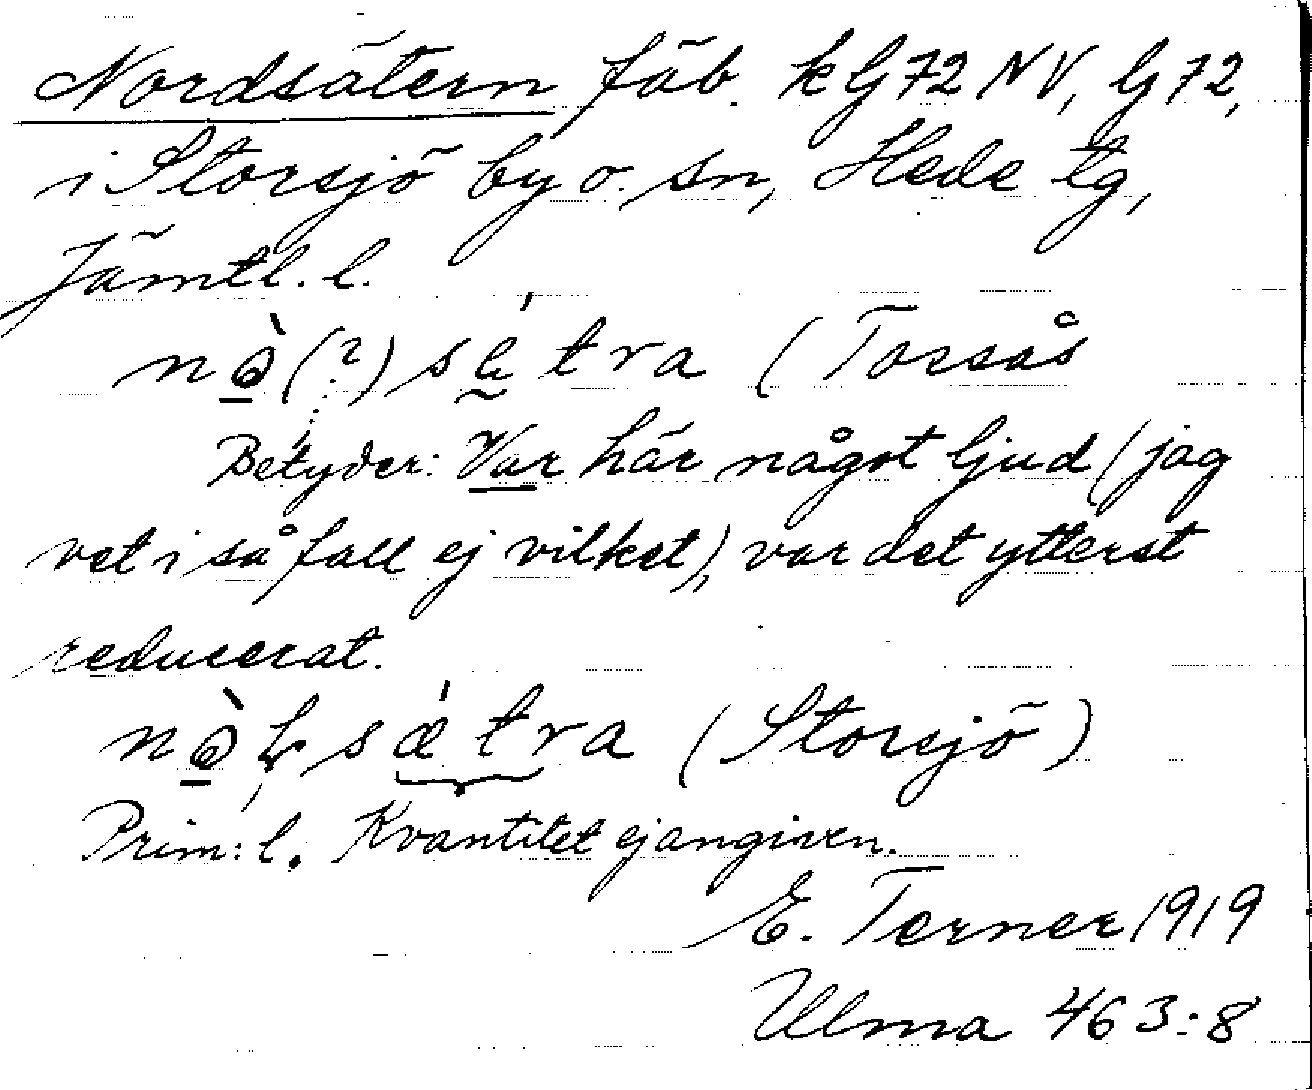 Nordsätern fäb. k G 72 NV, G 72,
i Storsjö by o. sn, Hede tg,
Jämtl. l.
nò(?) sǽtra (Torsås
Betyder: Var här något ljud (jag
vet i så fall ej vilket), var det ytterst
reducerat.
sǽtra (Storsjö)
Prim: l. Kvantitet ej angiven.
E. Terner 1919
Ulma 463:8